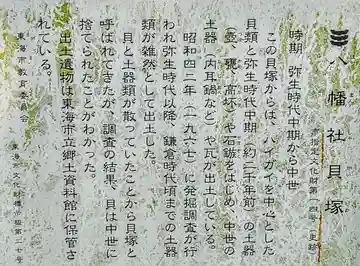 八幡社貝塚
市指定文化財第一四号（史跡）
時期　弥生時代中期から中世
この貝塚からは、ハイガイを中心とした
貝類と弥生時代中期（約二千年前）の土器
（壺、甕、高坏）や石鏃をはじめ、中世の
土器（内耳鍋など）や瓦が出土している。
昭和四二年（一九六七）に発掘調査が行
われ弥生時代以降、鎌倉時代頃までの土器
類が雑然として出土した。
貝と土器類が散っていたことから貝塚と
呼ばれてきたが、調査の結果、貝は中世に
捨てられたことがわかった。
出土遺物は東海市立郷土資料館に保管さ
れている。
東海市教育委員会
東海　文化財標示板第二十号